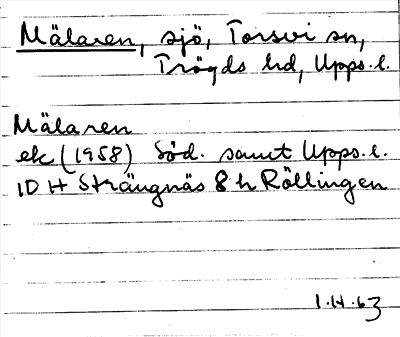 Mälaren, sjö, Torsvi sn,
Trögds hd, Upps. l.
Mälaren
ek (1958) Söd. samt Upps. l.
10 H Strängnäs 8 h Röllingen